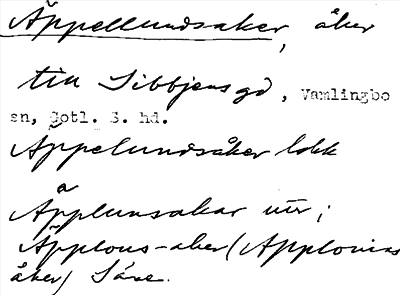 Äppellundsaker, åker
till Sibbjens gd, Vamlingbo
sn, Gotl. S. hd.
Äppelundsåker lokk
Äpplunsakar
Äpplous-aker (Applouns
åker) Säve.